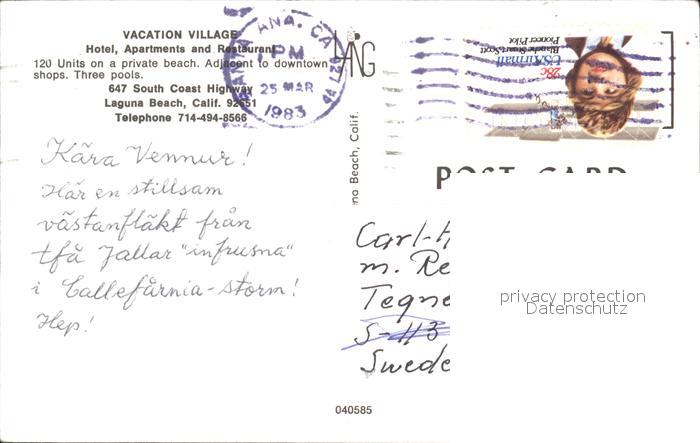 VACATION VILLAGE
Hotel, Apartments and Restaurant
120 Units on a private beach. Adjacent to downtown
shops. Three pools.
647 South Coast Highway
Laguna Beach, Calif. 92651
Telephone 714-494-8566
Kära Vennur!
Här en stillsam
västanfläkt från
tfå Jallar "infrusna"
i Callefårnia-storm!
Hep!
SANTA ANA, CA
PM
25 MAR
1983
na Beach, Calif.
Blanche Stuart Scott
Pioneer Pilot
USAirmail
28c
POST CARD
Carl-H
m. Re
Tegne
S-113
Swede
privacy protection
Datenschutz
040585